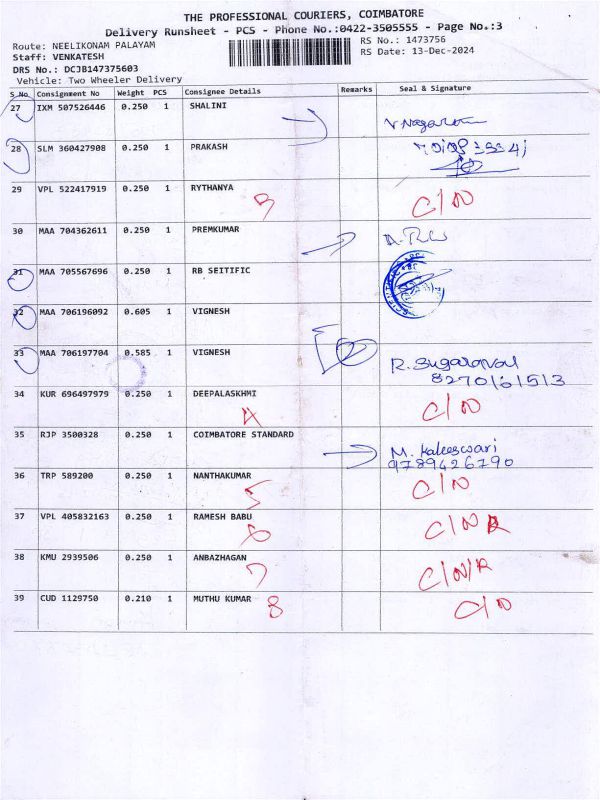 THE PROFESSIONAL COURIERS, COIMBATORE
Delivery Runsheet - PCS - Phone No.:0422-3505555 - Page No.:3
Route: NEELIKONAM PALAYAM
RS No.: 1473756
Staff: VENKATESH
RS Date: 13-Dec-2024
DRS No.: DCJB147375603
Vehicle: Two Wheeler Delivery
S.No. Consignment No Weight PCS Consignee Details Remarks Seal & Signature
27 IXM 507526446 0.250 1 SHALINI
28 SLM 360427908 0.250 1 PRAKASH
29 VPL 522417919 0.250 1 RYTHANYA
3 C/N
30 MAA 704362611 0.250 1 PREMKUMAR
31 MAA 705567696 0.250 1 RB SEITIFIC
32 MAA 706196092 0.605 1 VIGNESH
33 MAA 706197704 0.585 1 VIGNESH
R. Sugaraval
8270161513
34 KUR 696497979 0.250 1 DEEPALASKHMI
4 C/N
35 RJP 3500328 0.250 1 COIMBATORE STANDARD
M. Kaleeswari
9789426790
36 TRP 589200 0.250 1 NANTHAKUMAR
5 C/N
37 VPL 405832163 0.250 1 RAMESH BABU
6 C/N R
38 KMU 2939506 0.250 1 ANBAZHAGAN
7 C/N/R
39 CUD 1129750 0.210 1 MUTHU KUMAR 8 C/N